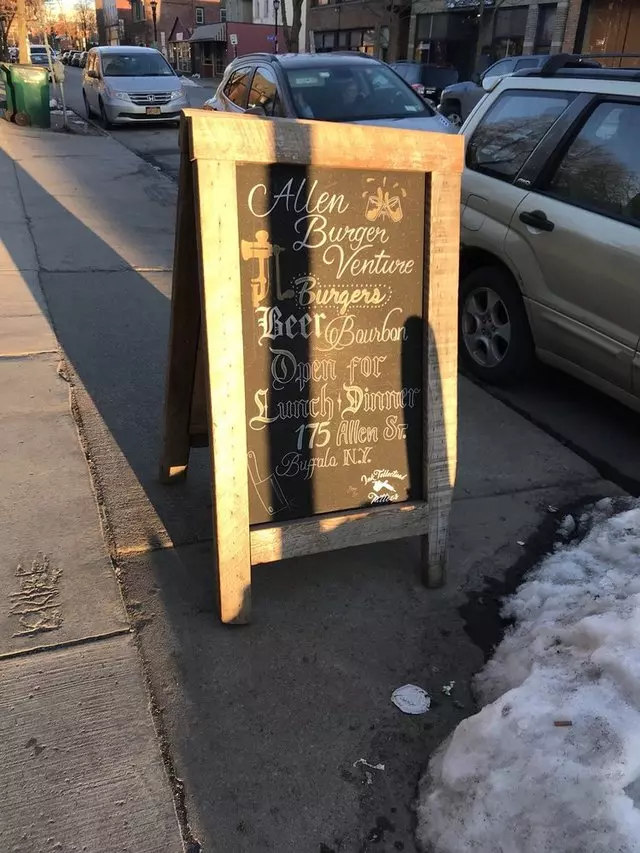 Allen
Burger
Venture
Burgers
Beer Bourbon
Open for
Lunch Dinner
175 Allen St.
Buffalo N.Y.
Tattoos